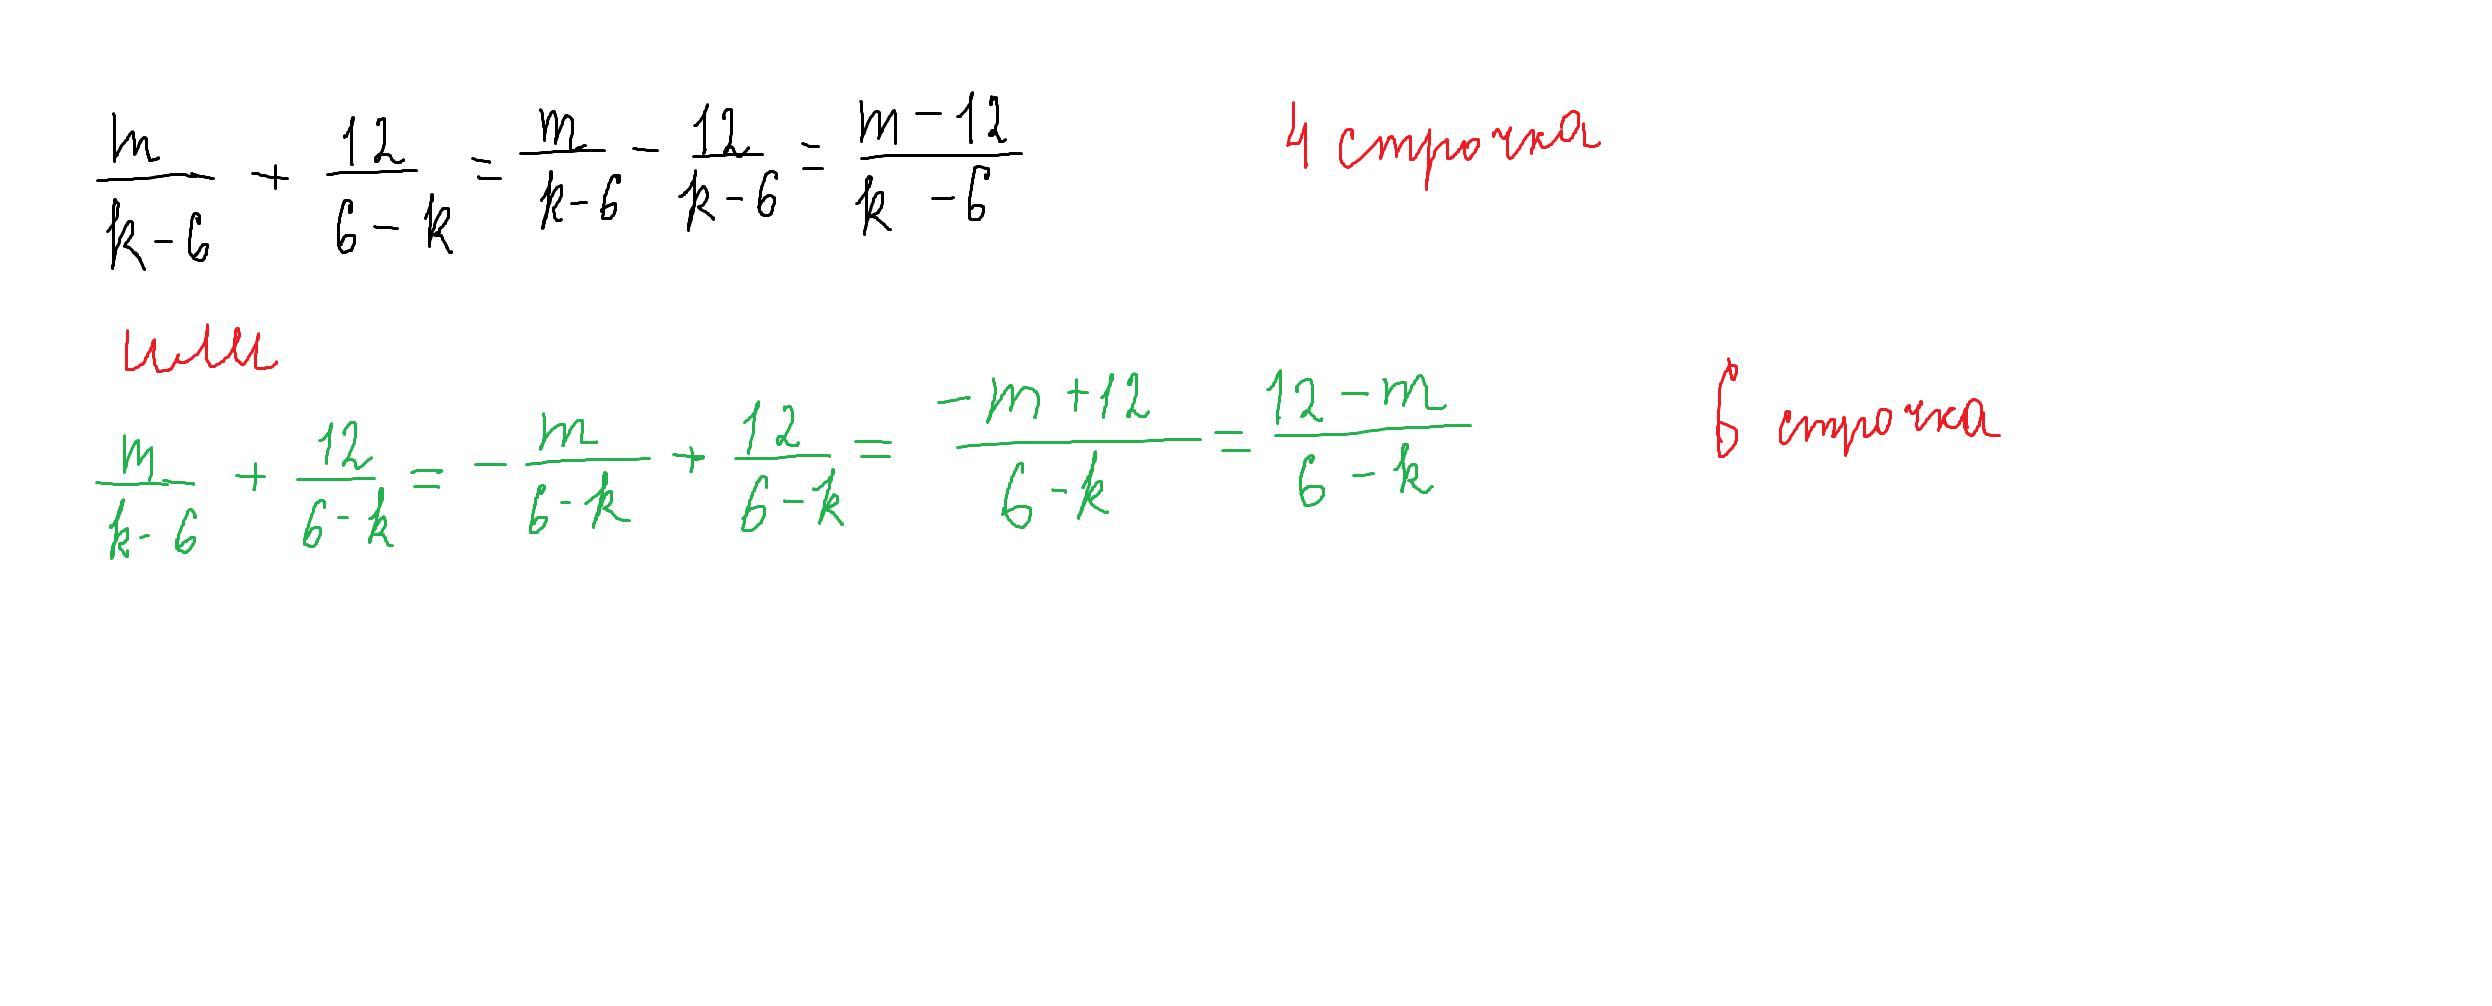 m/(k-6) + 12/(6-k) = m/(k-6) - 12/(k-6) = (m-12)/(k-6) 4 строчка
или
m/(k-6) + 12/(6-k) = - m/(6-k) + 12/(6-k) = (-m+12)/(6-k) = (12-m)/(6-k) 6 строчка